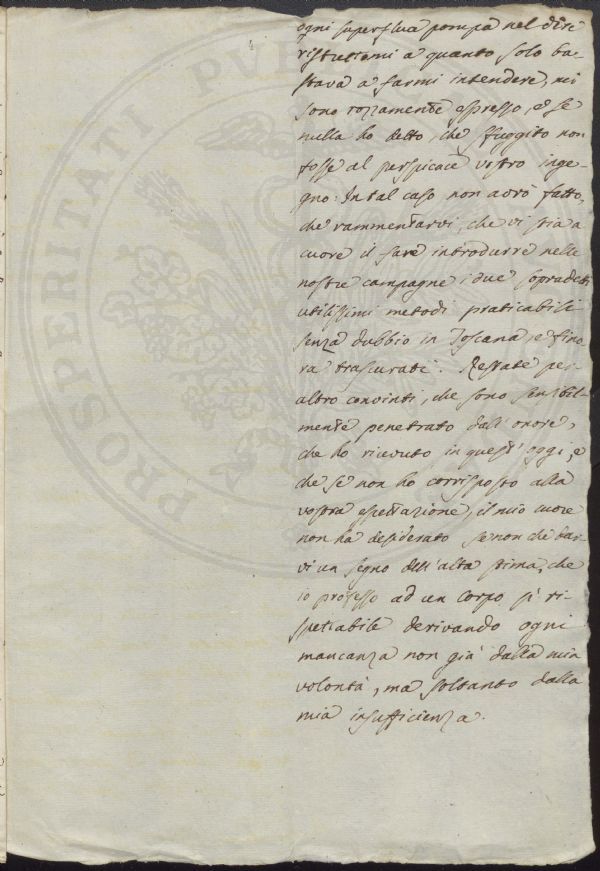 ogni superflua pompa nel dire
ristrettomi a quanto solo ba-
stava a farmi intendere, mi
sono rozzamente espresso, e se
nulla ho detto, che sfuggito non
fosse al perspicace vostro inge-
gno: In tal caso non avrò fatto,
che rammentarvi, che vi stia a
cuore il fare introdurre nelle
nostre campagne i due sopradetti
utilissimi metodi praticabili
senza dubbio in Toscana, e fino
ra trascurati. Restate per
altro convinti, che sono sensibil-
mente penetrato dall'onore,
che ho ricevuto in quest'oggi, e
che se non ho corrisposto alla
vostra espettazione, il mio cuore
non ha desiderato se non che dar-
vi un segno dell'alta stima, che
io professo ad un corpo sì ri-
spettabile derivando ogni
mancanza non già dalla mia
volontà, ma soltanto dalla
mia insufficienza.
PROSPERITATI PVB